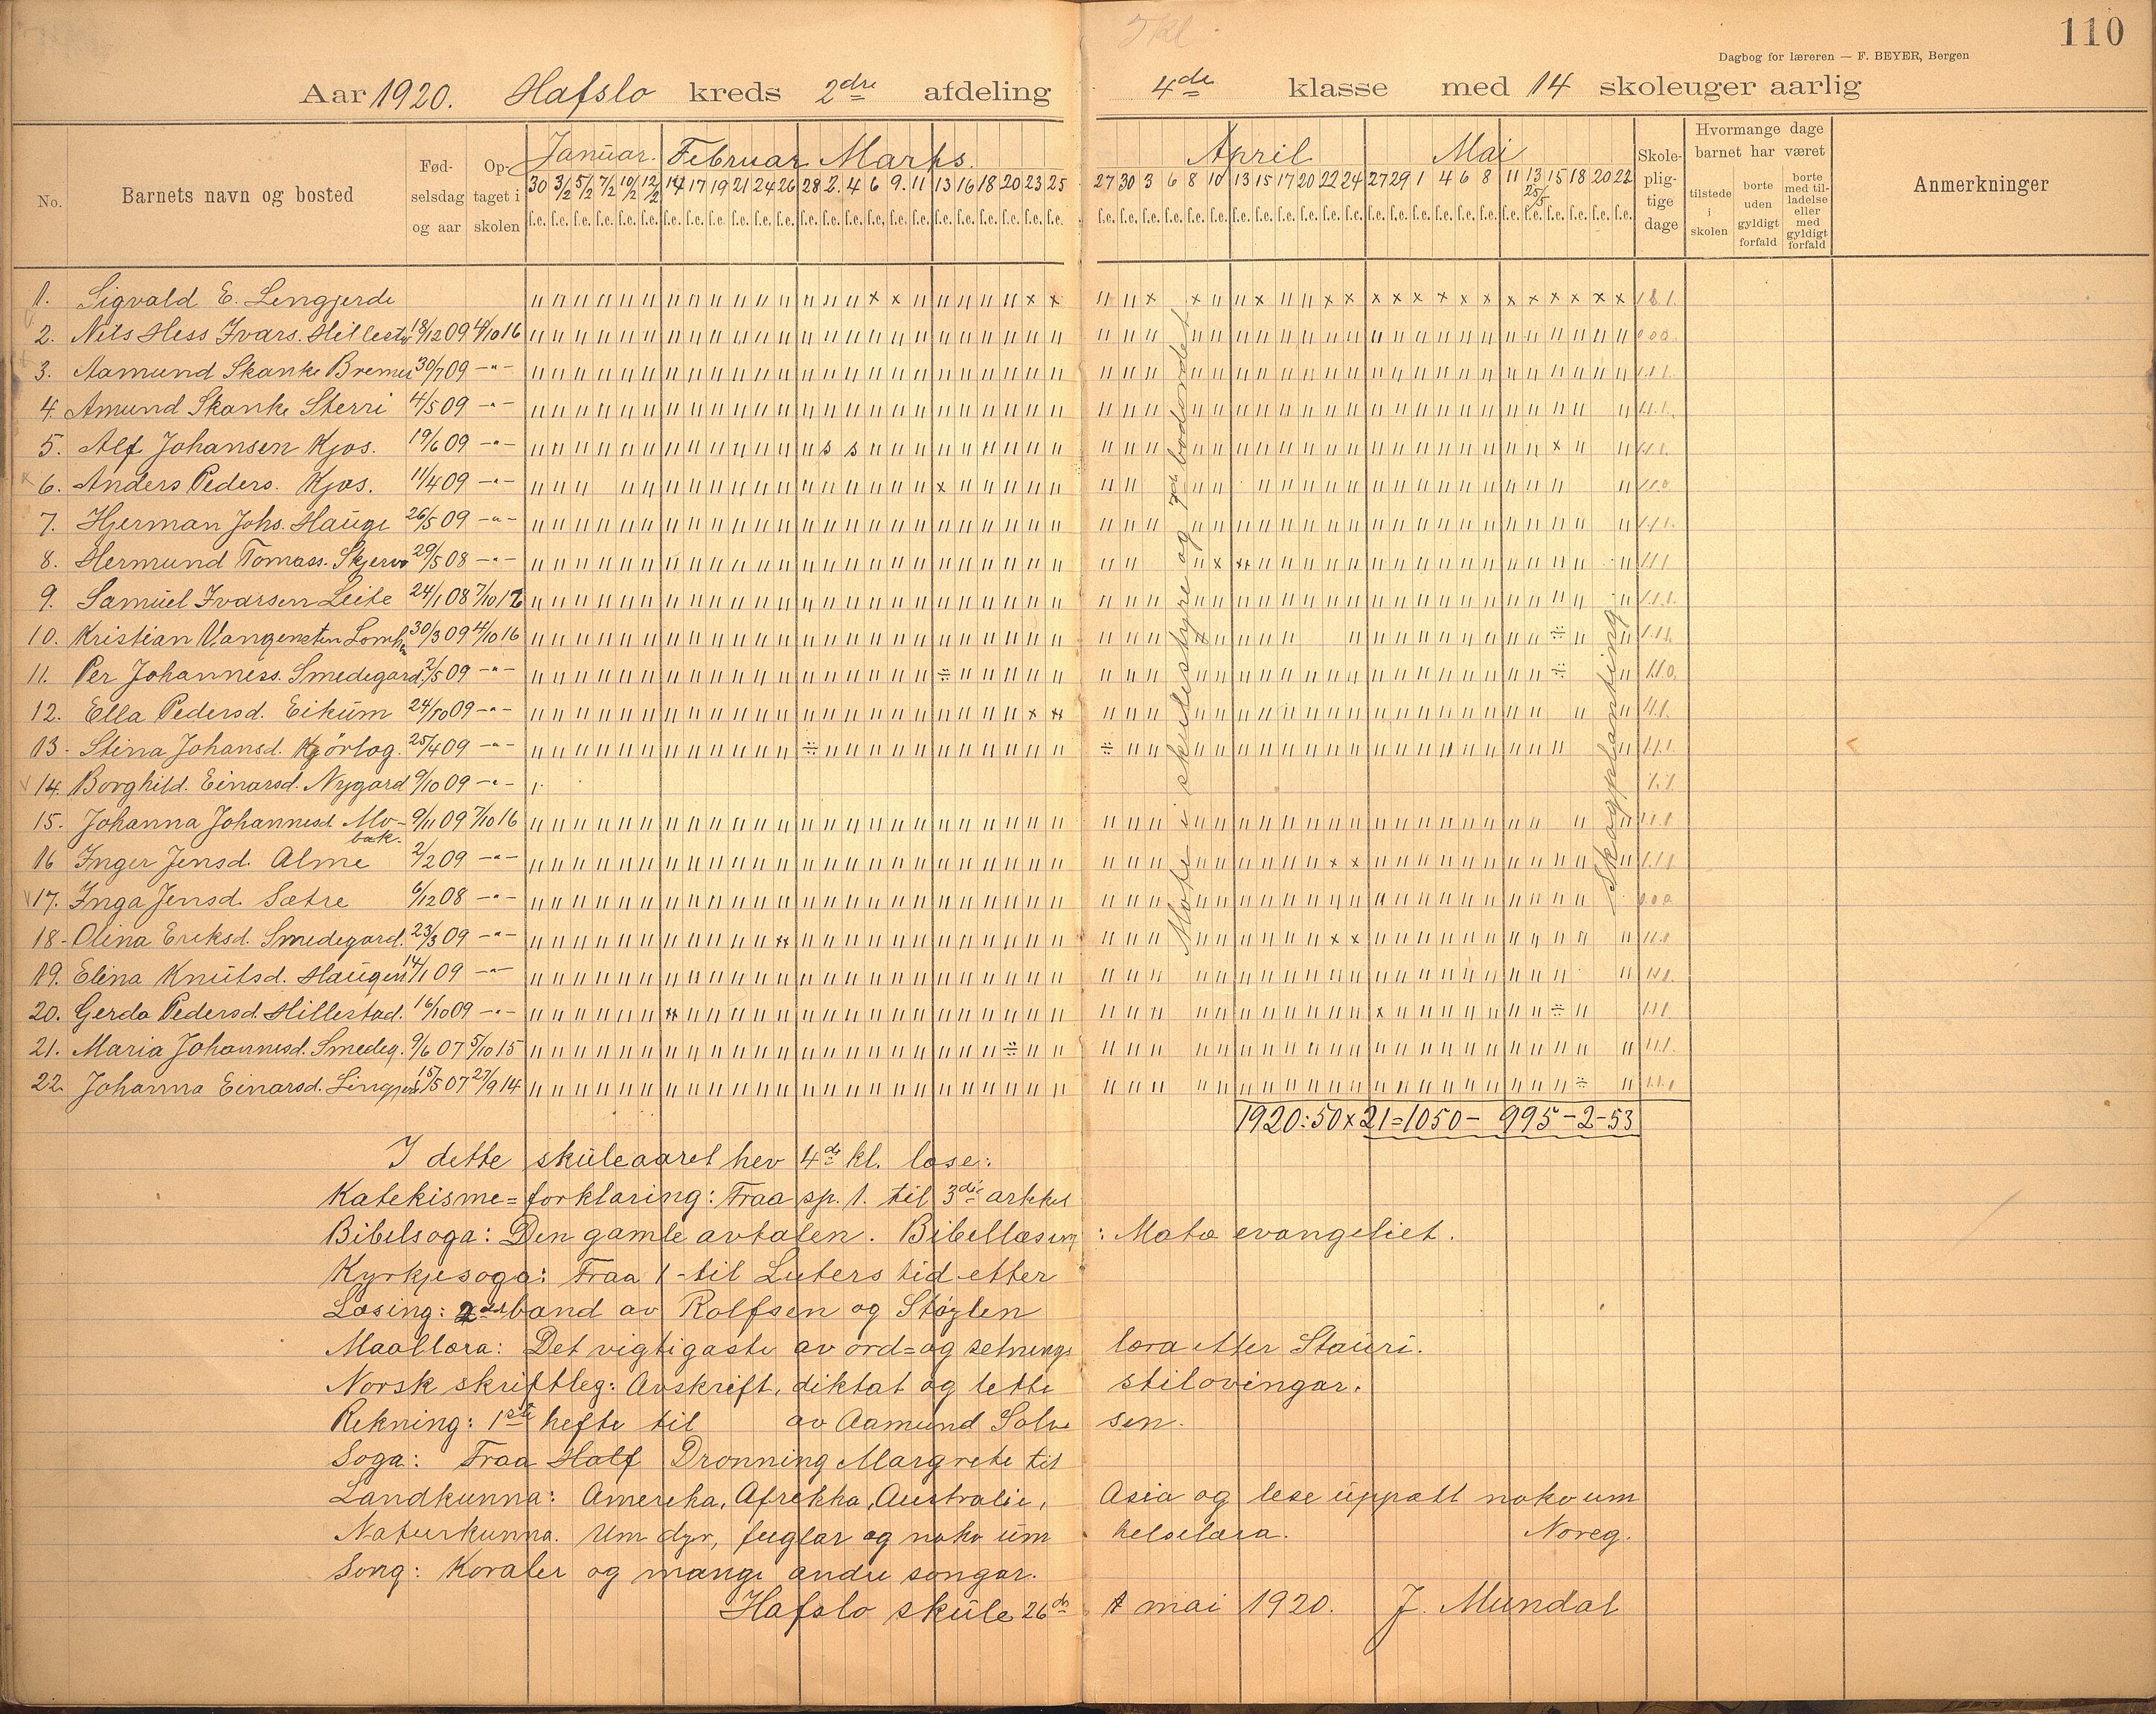 110
Dagbog for læreren — F. BEYER, Bergen
Aar 1920. Hafslo kreds 2dre afdeling 4de klasse med 14 skoleuger aarlig
No. Barnets navn og bosted Fødselsdag og aar Optaget i skolen Januar. Februar Marts. April Mai Skolepligtige dage Hvormange dage barnet har været Anmerkninger
30 3/2 5/2 7/2 10/2 12/2 14 17 19 21 24 26 28 2. 4 6 9. 11 13 16 18 20 23 25 27 30 3 6 8 10 13 15 17 20 22 24 27 29 1 4 6 8 11 13 15 18 20 22
25/5
f.e. f.e. f.e. f.e. f.e. f.e. f.e. f.e. f.e. f.e. f.e. f.e. f.e. f.e. f.e. f.e. f.e. f.e. f.e. f.e. f.e. f.e. f.e. f.e. f.e. f.e. f.e. f.e. f.e. f.e. f.e. f.e. f.e. f.e. f.e. f.e. f.e. f.e. f.e. f.e. f.e. f.e. f.e. f.e. f.e. f.e. f.e. f.e.
tilstede i skolen
borte uden gyldigt forfald
borte med tilladelse eller med gyldigt forfald
1. Sigvald E. Lengjerde
2. Nils Hess Ivars. Hillestad 18/12 09 4/10 16
3. Aamund Skanke Bremer 30/7 09 -"-
4. Amund Skanke Sterri 4/5 09 -"-
5. Alf Johansen Kjos. 19/6 09 -"-
6. Anders Peders. Kjos. 11/4 09 -"-
7. Hjerman Johs. Hauge 26/5 09 -"-
8. Hermund Tomass. Skjervo 29/5 08 -"-
9. Samuel Ivarsen Leite 24/1 08 7/10 16
10. Kristian Vangensten Lomh 30/3 09 4/10 16
11. Per Johanness. Smedegard. 2/5 09 -"-
12. Ella Pedersd. Eikum 24/10 09 -"-
13. Stina Johansd. Kjörlog. 25/4 09 -"-
14. Borghild. Einarsd. Nygard 9/10 09 -"-
15. Johanna Johannesd. Mobak. 9/11 09 7/10 16
16 Inger Jensd. Alme 2/2 09 -"-
17. Inga Jensd. Sætre 6/12 08 -"-
18. Olina Eriksd. Smedegard. 23/3 09 -"-
19. Elina Knutsd. Haugen 14/1 09 -"-
20. Gerda Pedersd. Hillestad. 16/10 09 -"-
21. Maria Johannesd. Smedeg. 9/6 07 5/10 15
22. Johanna Einarsd. Lingjerde 15/5 07 27/9 14
Møte i skulestyre og
Skogplanting
1920: 50 x 21 = 1050 – 995 – 2 – 53
I dette skuleaaret hev 4de kl. lese:
Katekisme=forklaring: Fraa sp. 1. til 3die artikel
Bibelsoga: Den gamle avtalen. Bibellæsing: Mata evangeliet.
Kyrkjesoga: Fraa 1 - til Luters tid etter
Læsing: 2det band av Rolfsen og Støylen
Maallæra: Det vigtigaste av ord= og setningslæra etter Stauri.
Norsk skriftleg: Avskrift, diktat og lette stiløvingar.
Rekning: 1ste hefte til av Aamund Salvesen.
Soga: Fraa Half Dronning Margrete til
Landkunna: Amerika, Afrikka, Australie, Asia og lese uppatt noko um Noreg.
Naturkunna. Um dyr, fuglar og noko um helselæra.
Song: Koraler og mange andre songar.
Hafslo skule 26de mai 1920. J. Mundal